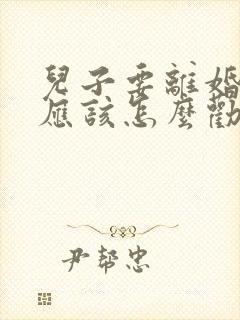 兒子要離婚
應該怎麼勸
尹幫忠